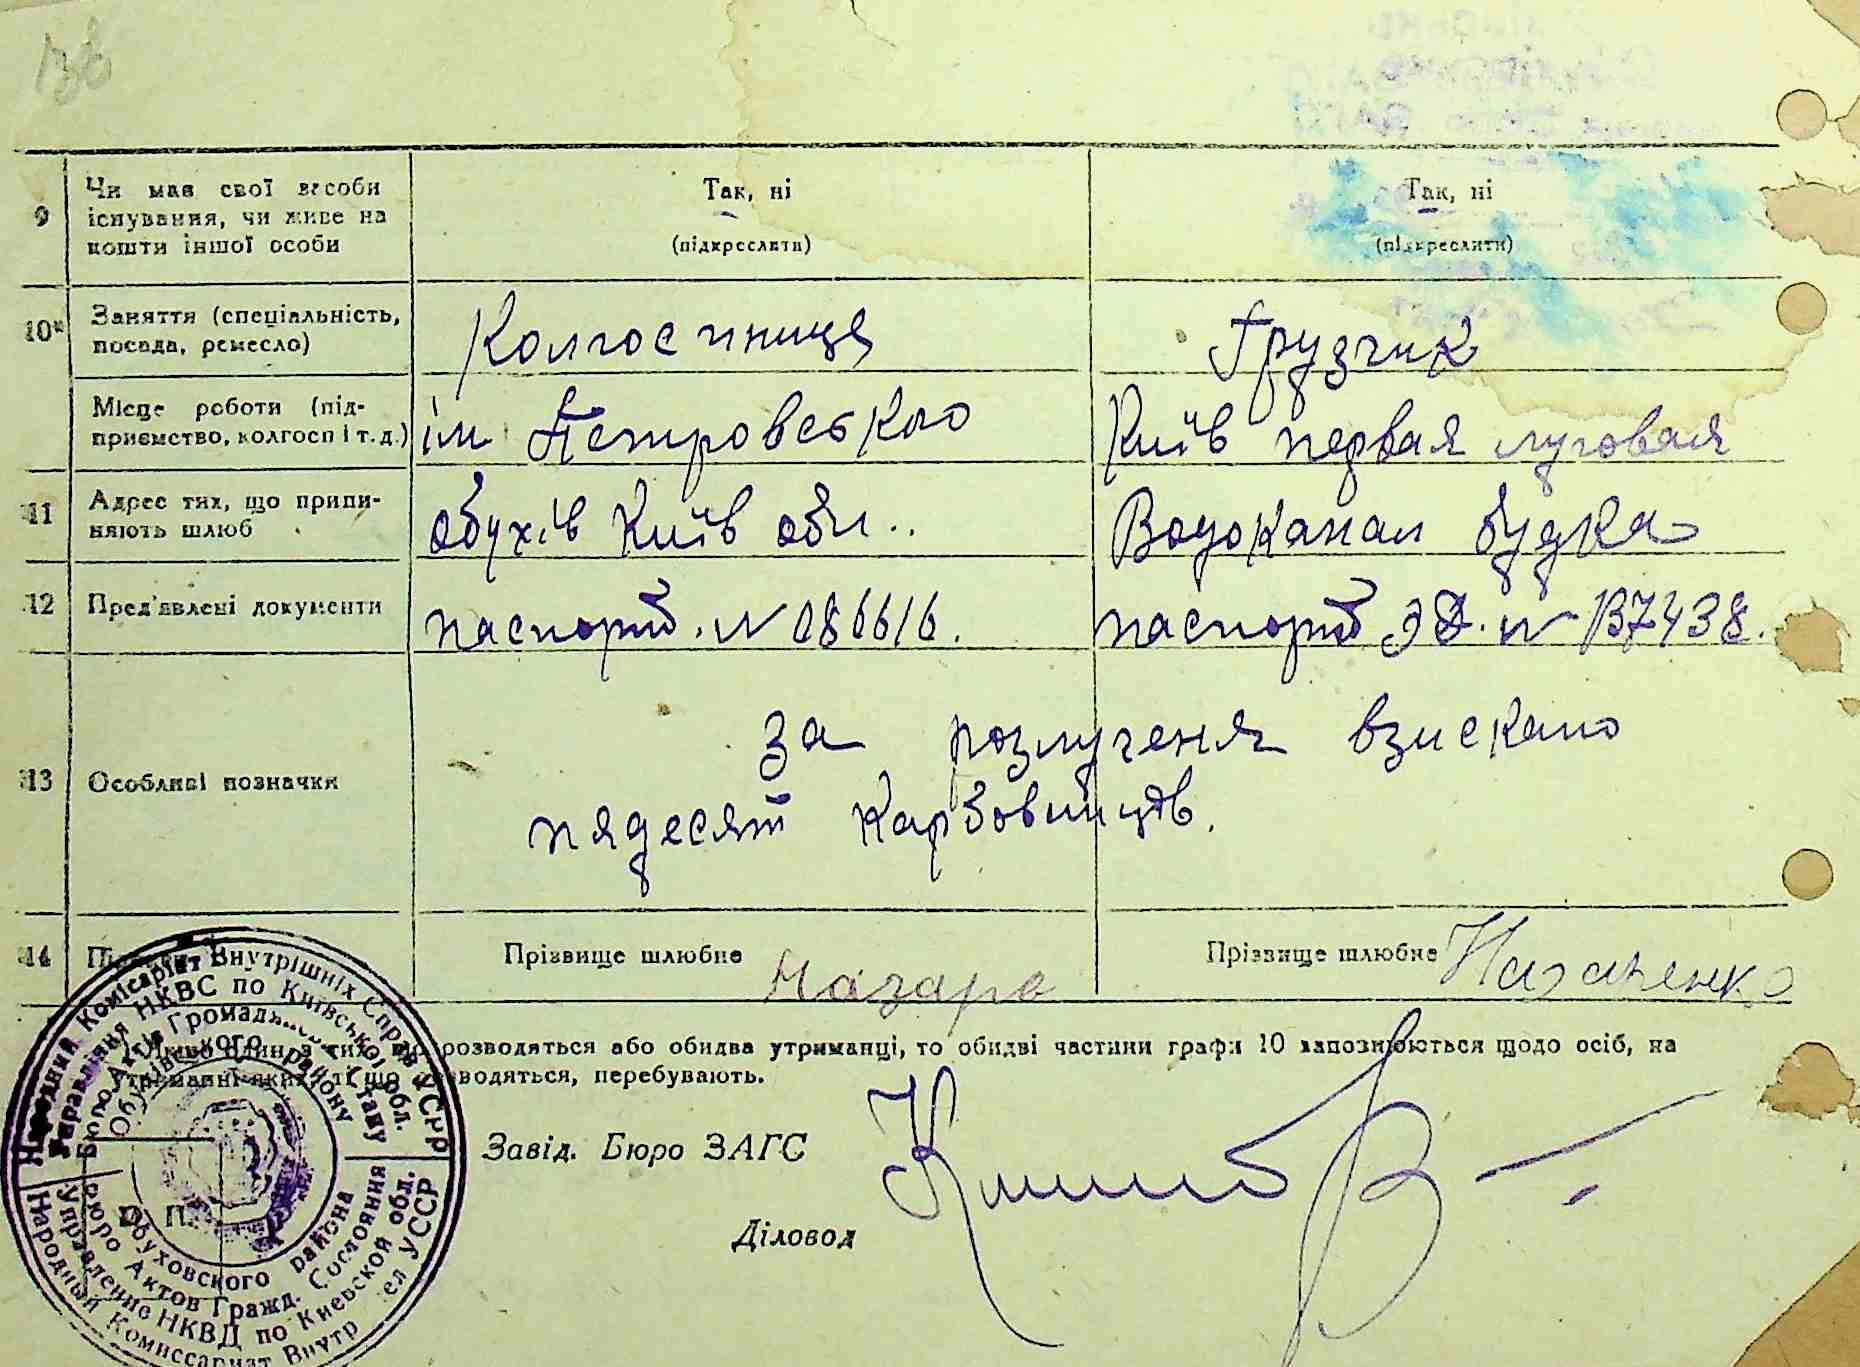 136
9 Чи має свої засоби існування, чи живе на кошти іншої особи
Так, ні
(підкреслити)
Так, ні
(підкреслити)
10* Заняття (спеціальність, посада, ремесло)
Колгоспниця
Грузчик
Місце роботи (підприємство, колгосп і т. д.)
ім Петровського
Київ первая луговая
11 Адрес тих, що припиняють шлюб
Обухів Київ обл..
Водоканал будка
12 Пред'явлені документи
паспорт. N 086616.
паспорт ЭД. N 137438.
13 Особливі позначки
за розлученя взискано
пядесят карбовинців.
14
Прізвище шлюбне Назаре
Прізвище шлюбне
розводяться або обидва утриманці, то обидві частини графи 10 заповнюються щодо осіб, на
утриманні яких, ті що розводяться, перебувають.
Завід. Бюро ЗАГС
Діловод
Народний Комісаріат Внутрішніх Справ УСРР
Управління НКВС по Київській обл.
Бюро Актів Громад. Стану
Обухівського району
Обуховского района
Бюро Актов Гражд. Состояния
Управление НКВД по Киевской обл.
Народный Комиссариат Внутр ел УССР